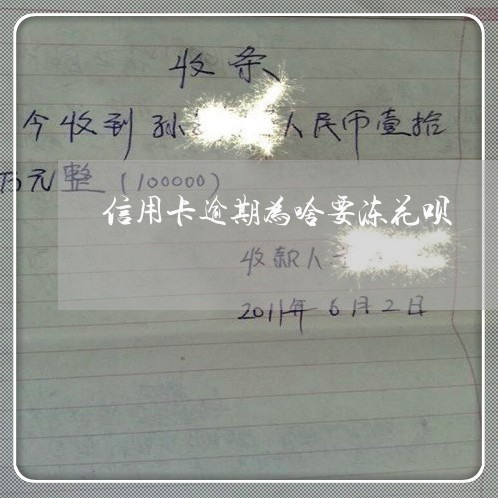 收条
今收到孙 人民币壹拾
万元整（100000）
信用卡逾期為啥要冻花呗
收款人
2011年6月2日